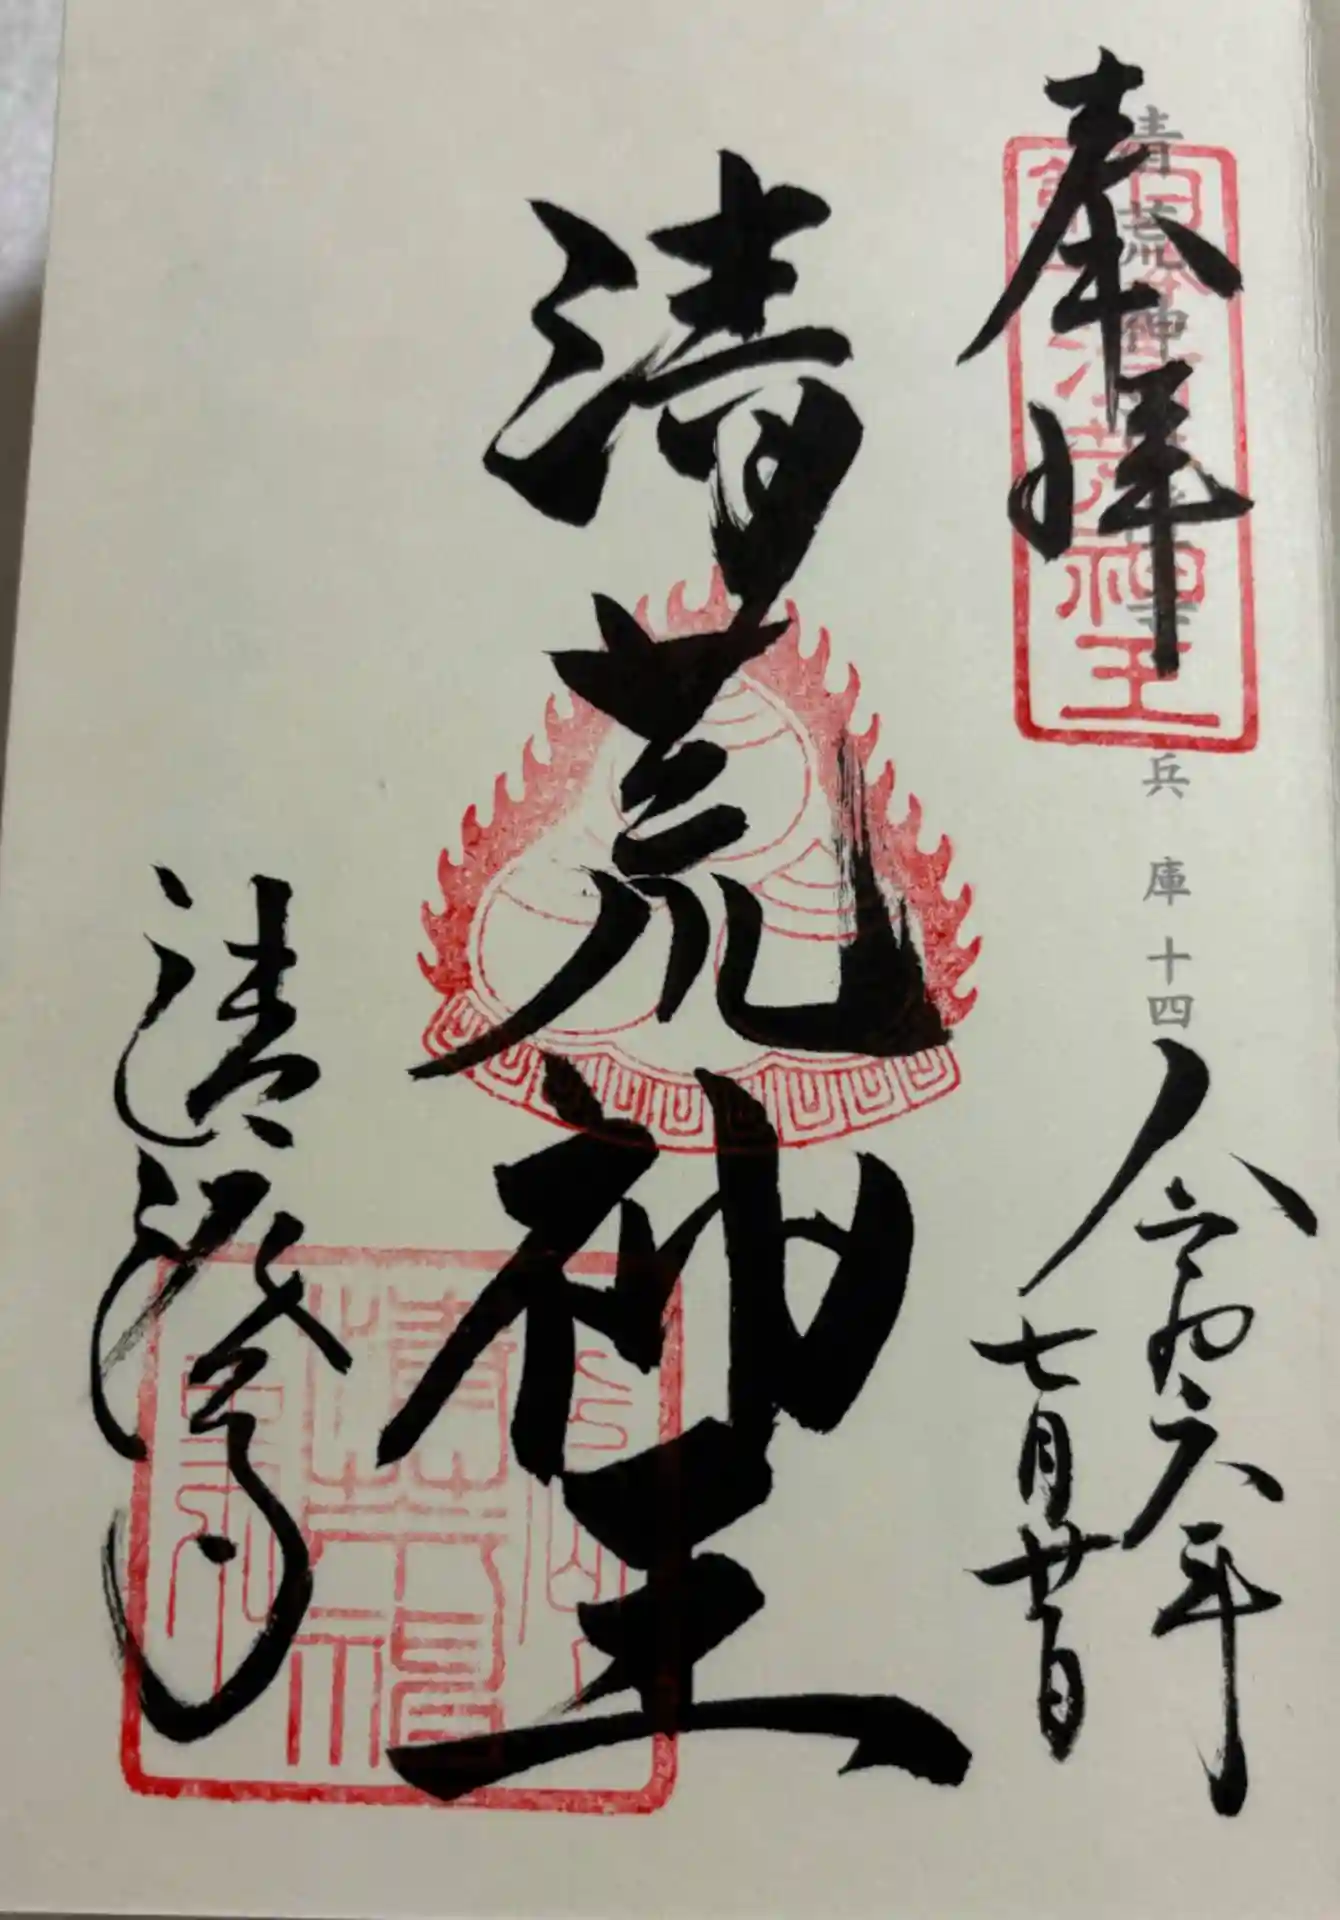 奉拝
清荒神清澄寺
兵庫十四
日本清荒神王
令和六年
七月廿日
清荒神王
清澄寺